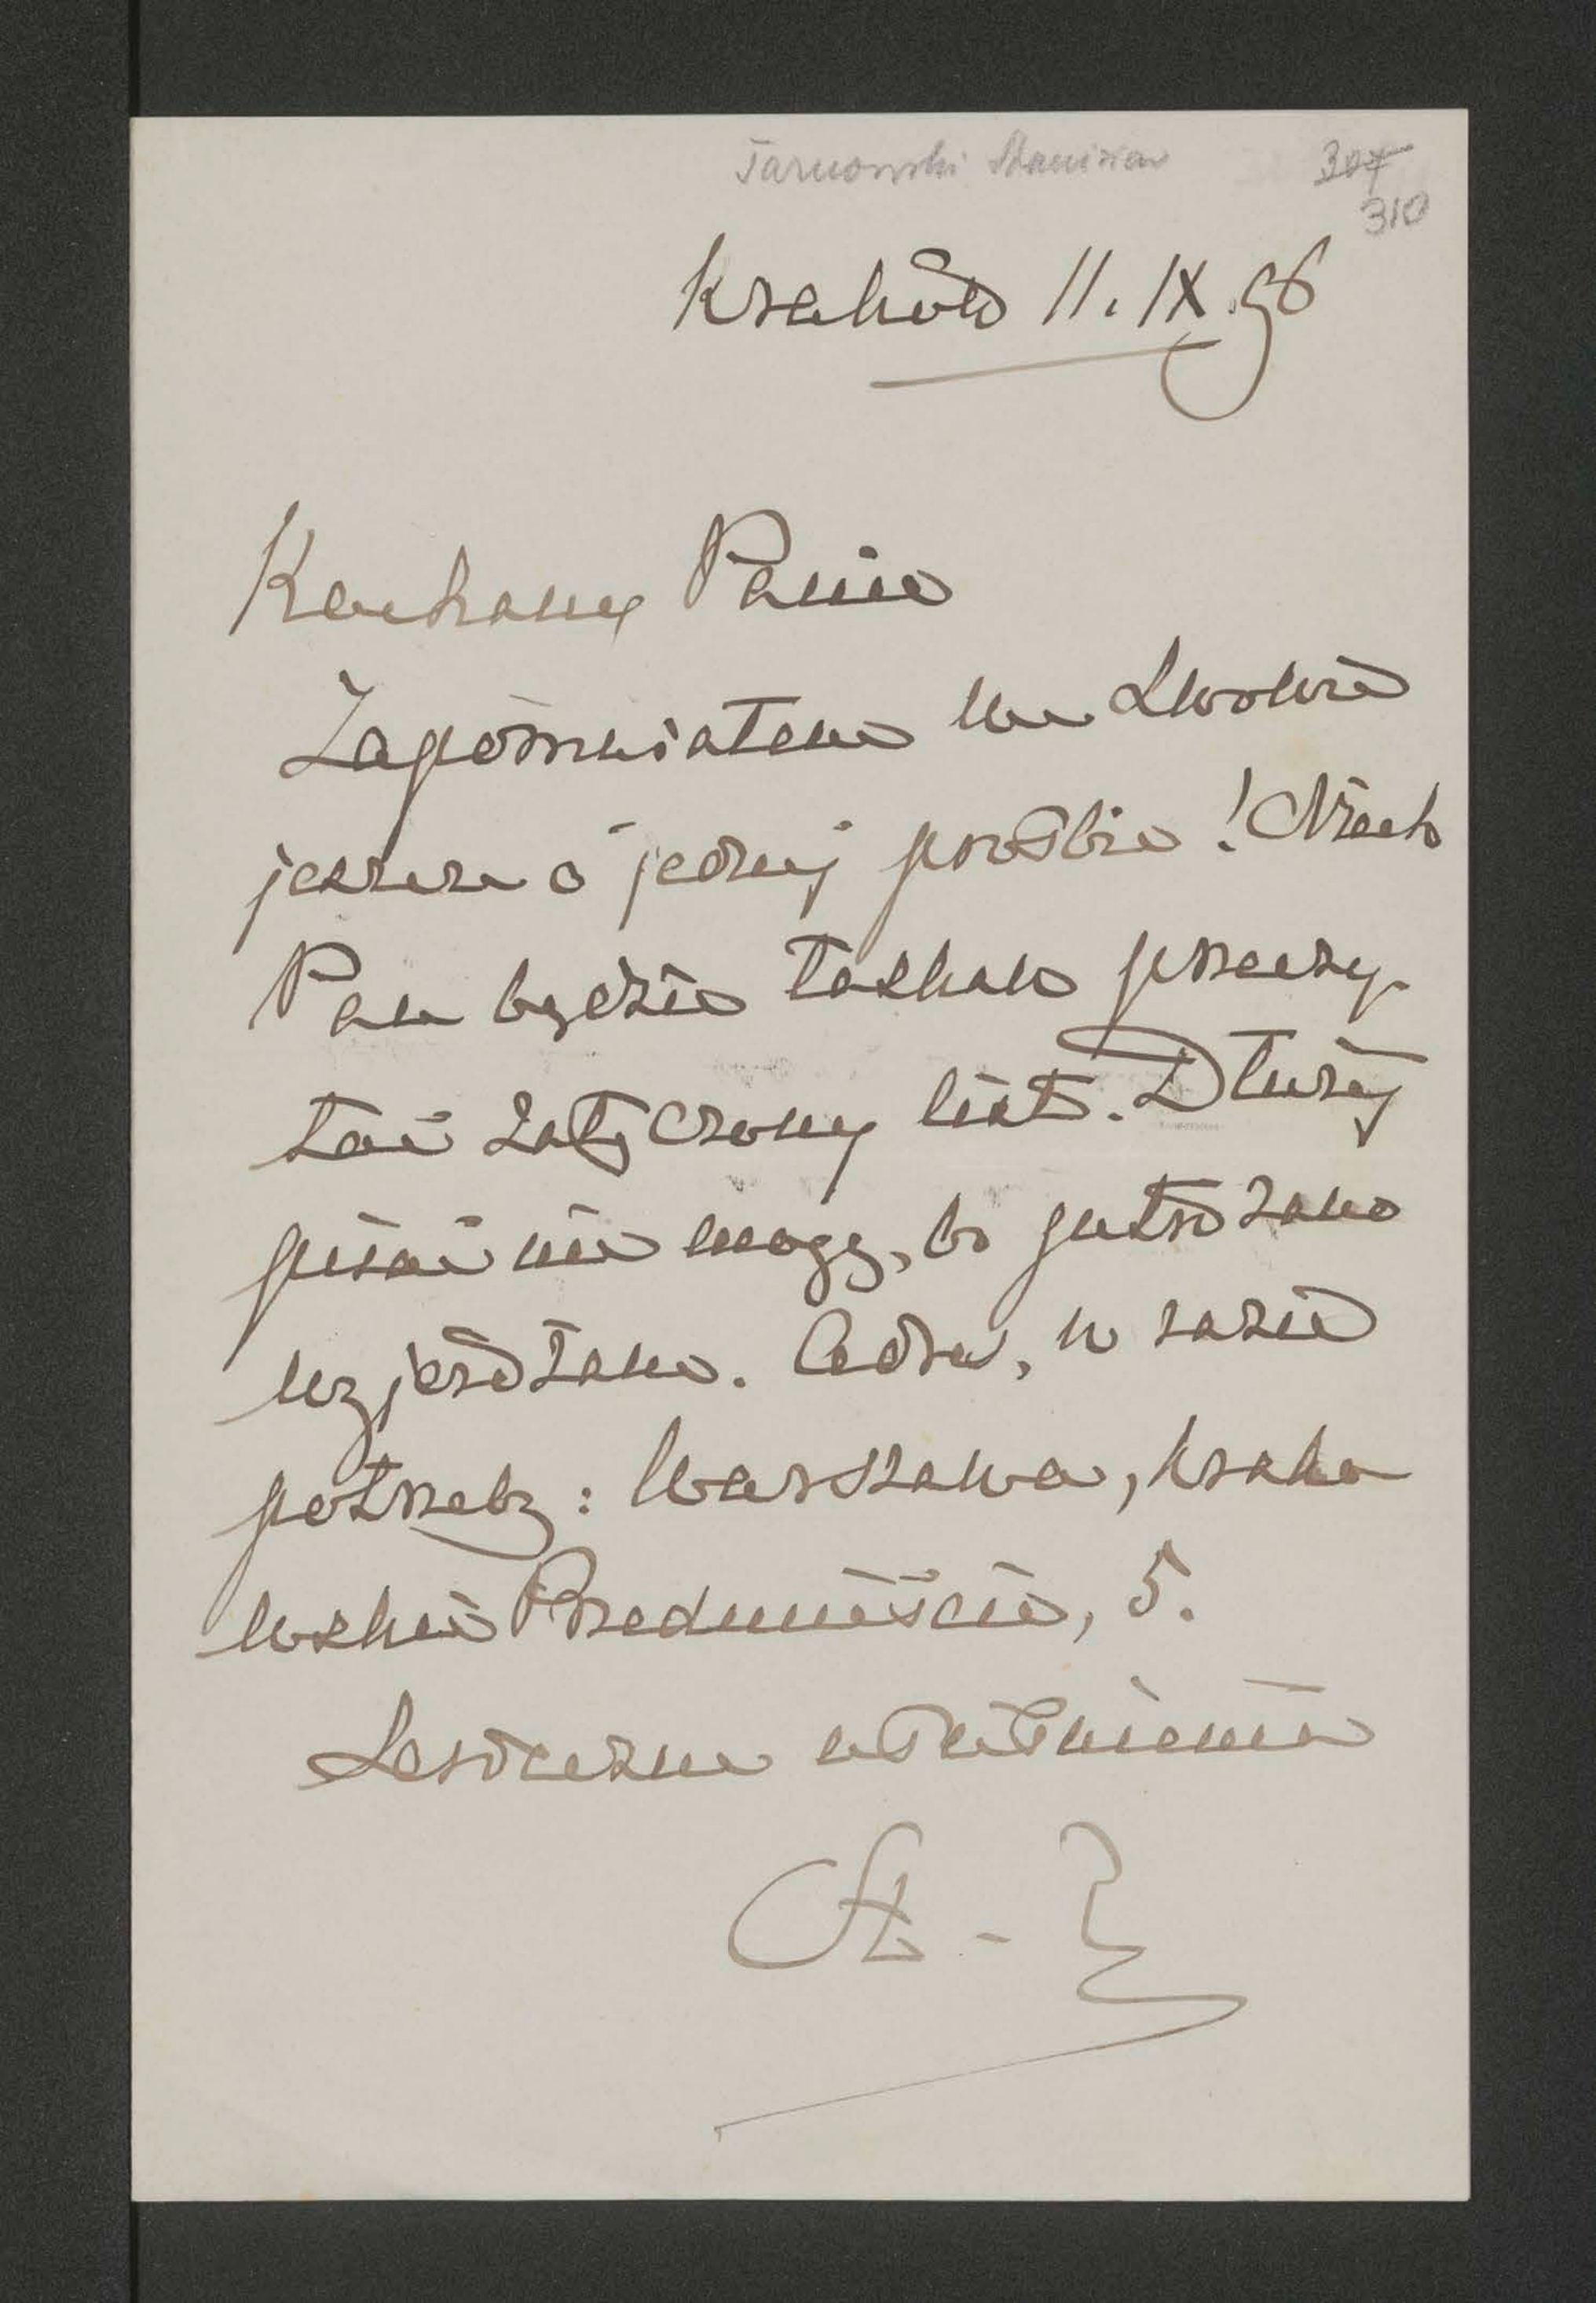 Tarnowski Stanisław
307
310
Kraków 11. IX. 96
Kochany Panie
Zapomniałem we Lwowie
jeszcze o jednej prośbie! Niech
Pan będzie łaskaw przeczy-
tać załączony list. Dłużej
pisać nie mogę, bo jutro rano
wyjeżdżam. Adres, w razie
potrzeby: Warszawa, Krako
wskie Przedmieście, 5.
Serdeczne uściśnienia